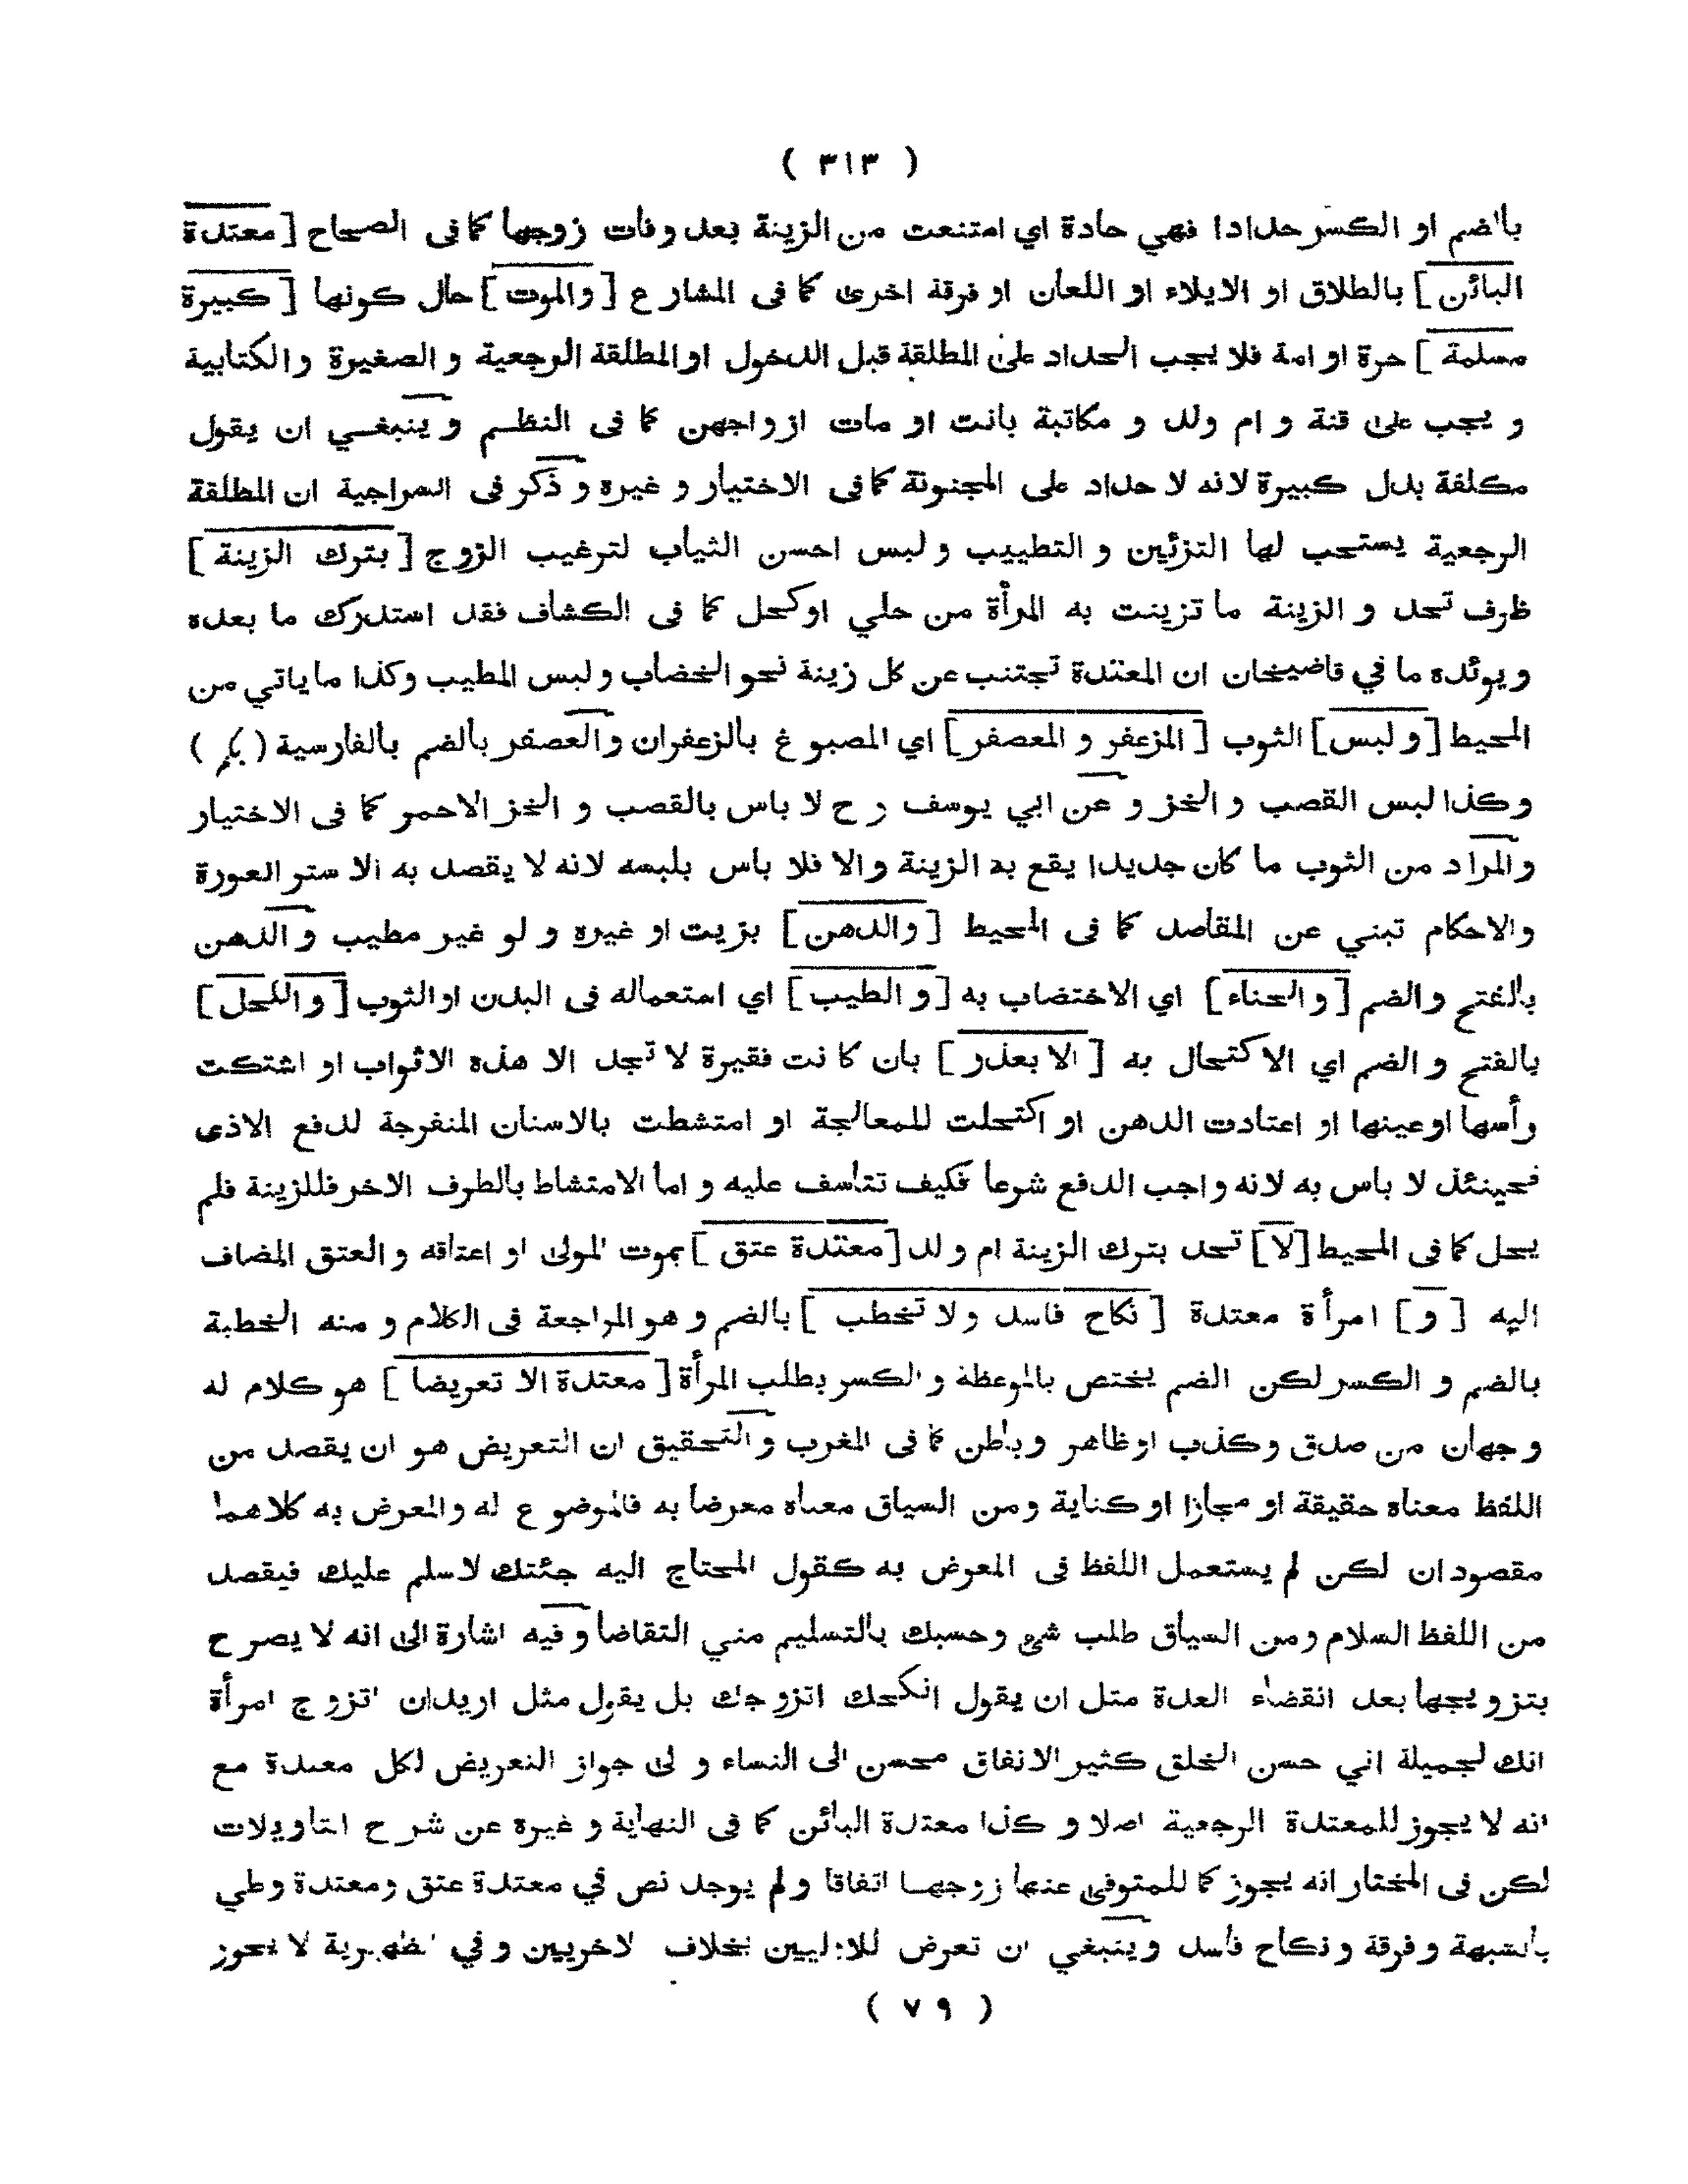 ( ٣١٣ )
بالضم او الكسر حدادا فهي حادة اي امتنعت من الزينة بعد وفات زوجها كما فى الصحاح [ معتدة
البائن ] بالطلاق او الايلاء او اللعان او فرقة اخرى كما فى المشارع [ والموت ] حال كونها [ كبيرة
مسلمة ] حرة او امة فلا يجب الحداد على المطلقة قبل الدخول او المطلقة الرجعية و الصغيرة و الكتابية
و يجب على قنة و ام ولد و مكاتبة بانت او مات ازواجهن كما فى النظم و ينبغي ان يقول
مكلفة بدل كبيرة لانه لا حداد على المجنونة كما فى الاختيار و غيره و ذكر فى السراجية ان المطلقة
الرجعية يستحب لها التزئين و التطييب و لبس احسن الثياب لترغيب الزوج [ بترك الزينة ]
ظرف تحد و الزينة ما تزينت به المرأة من حلي او كحل كما فى الكشاف فقد استدرك ما بعده
و يوئده ما في قاضيخان ان المعتدة تجتنب عن كل زينة نحو الخضاب و لبس المطيب وكذا ما ياتي من
المحيط [ و لبس ] الثوب [ المزعفر و المعصفر ] اي المصبوغ بالزعفران و العصفر بالضم بالفارسية ( بكم )
وكذا لبس القصب و الخز و عن ابي يوسف رح لا باس بالقصب و الخز الاحمر كما فى الاختيار
والمراد من الثوب ما كان جديدا يقع به الزينة و الا فلا باس بلبسه لانه لا يقصد به الا ستر العورة
والاحكام تبنى عن المقاصد كما فى المحيط [ والدهن ] بزيت او غيره و لو غير مطيب و الدهن
بالفتح و الضم [ و الحناء ] اي الاختضاب به [ و الطيب ] اي استعماله فى البدن او الثوب [ و الكحل ]
بالفتح و الضم اي الاكتحال به [ الا بعذر ] بان كانت فقيرة لا تجد الا هذه الاثواب او اشتكت
رأسها او عينها او اعتادت الدهن او اكتحلت للمعالجة او امتشطت بالاسنان المنفرجة لدفع الاذى
فحينئذ لا باس به لانه واجب الدفع شرعا فكيف تتاسف عليه و اما الامتشاط بالطرف الاخر فللزينة فلم
يحل كما فى المحيط [ لا ] تحد بترك الزينة ام ولد [ معتدة عتق ] بموت المولى او اعتاقه و العتق المضاف
اليه [ و ] امرأة معتدة [ نكاح فاسد ولا تخطب ] بالضم و هو المراجعة فى الكلام و منه الخطبة
بالضم و الكسر لكن الضم يختص بالموعظة و الكسر بطلب المرأة [ معتدة الا تعريضا ] هو كلام له
وجهان من صدق وكذب او ظاهر و باطن كما فى المغرب و التحقيق ان التعريض هو ان يقصد من
اللفظ معناه حقيقة او مجازا او كناية و من السياق معناه معرضا به فالموضوع له و المعرض به كلاهما
مقصودان لكن لم يستعمل اللفظ فى المعرض به كقول المحتاج اليه جئتك لاسلم عليك فيقصد
من اللفظ السلام و من السياق طلب شئ وحسبك بالتسليم مني التقاضا و فيه اشارة الى انه لا يصرح
بتزويجها بعد انقضاء العدة مثل ان يقول انكحك اتزوجك بل يقول مثل اريد ان اتزوج امرأة
انك لجميلة اني حسن الخلق كثير الانفاق محسن الى النساء و لى جواز التعريض لكل معتدة مع
انه لا يجوز للمعتدة الرجعية اصلا و كذا معتدة البائن كما فى النهاية و غيره عن شرح التاويلات
لكن فى المختار انه يجوز كما للمتوفى عنها زوجها اتفاقا و لم يوجد نص في معتدة عتق ومعتدة وطي
بالشبهة و فرقة و نكاح فاسد و ينبغي ان تعرض للاوليين بخلاف الاخريين و في الظهيرية لا يجوز
( ٧٩ )